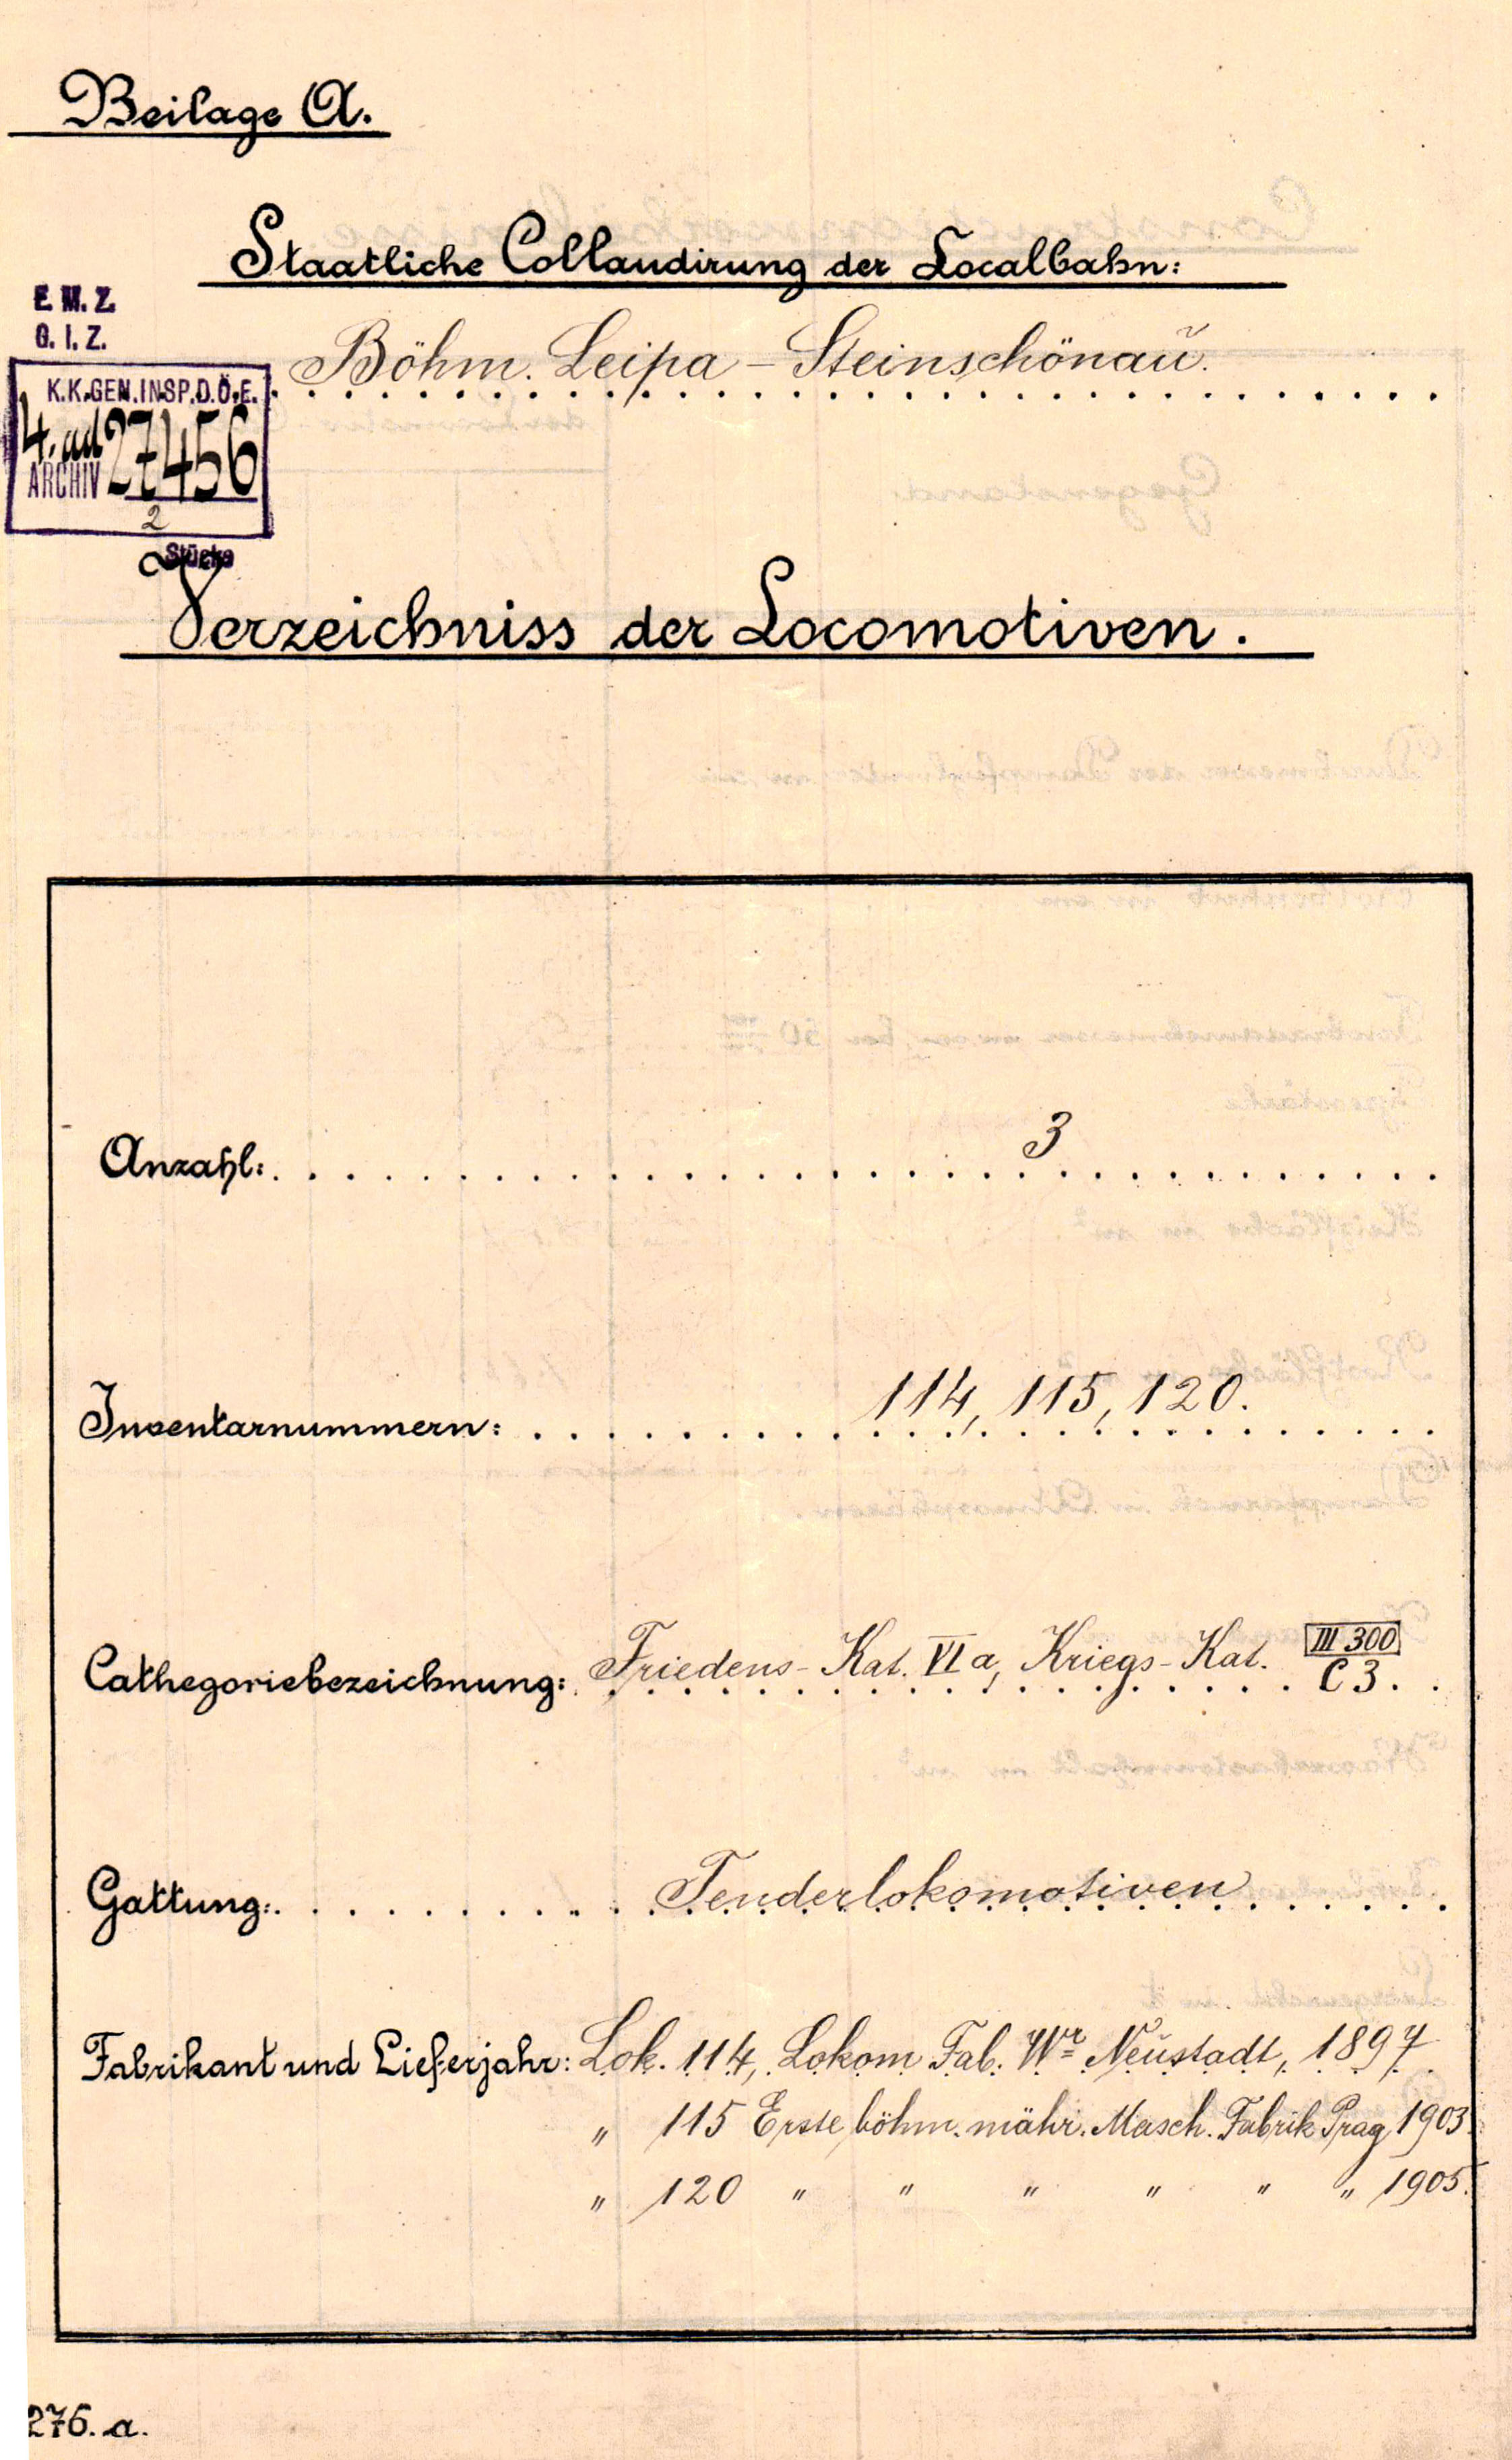 Beilage A.
Staatliche Collaudirung der Localbahn:
E. M. Z.
G. I. Z.
Böhm. Leipa – Steinschönau.
K.K.GEN.INSP.D.Ö.E.
4. ad 27456
ARCHIV
2
Stücke
Verzeichniss der Locomotiven.
Anzahl: 3
Inventarnummern: 114, 115, 120.
Cathegoriebezeichnung: Friedens-Kat. VI a, Kriegs-Kat. III 300
C 3.
Gattung: Tenderlokomotiven
Fabrikant und Lieferjahr: Lok. 114, Lokom Fab. Wr Neustadt, 1897
" 115 Erste böhm. mähr. Masch. Fabrik Prag 1903
" 120 " " " " " " 1905.
276. a.